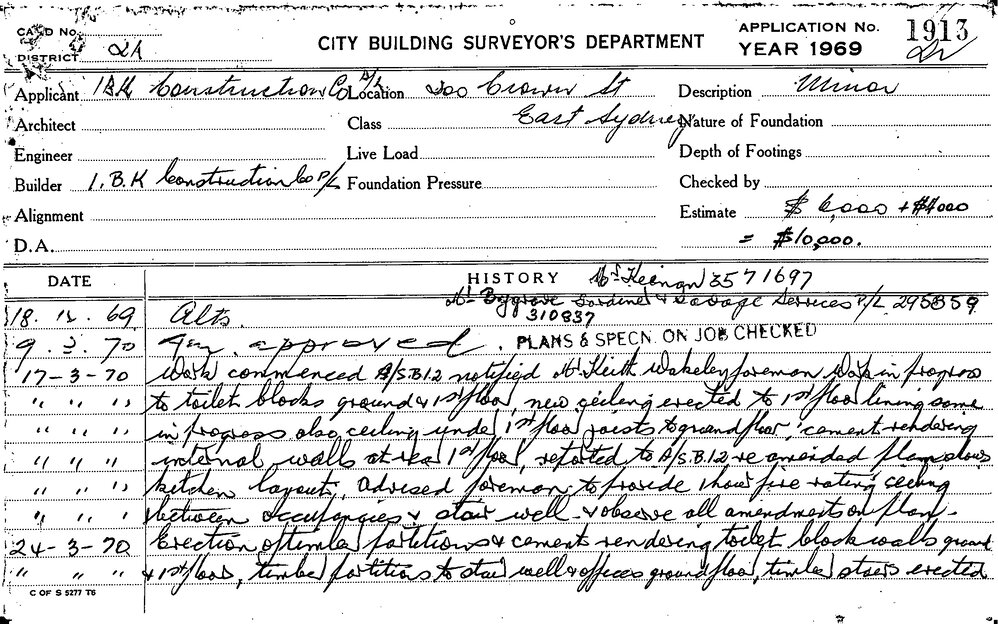 CARD No.
DISTRICT 2A
CITY BUILDING SURVEYOR'S DEPARTMENT
APPLICATION No. 1913
YEAR 1969
Applicant I.B.K Construction Co P/L Location 200 Crown St Description Minor
Architect Class East Sydney Nature of Foundation
Engineer Live Load Depth of Footings
Builder I.B.K Construction Co P/L Foundation Pressure Checked by
Alignment Estimate $ 6,000 + $4000
D.A. = $10,000.
DATE HISTORY Mr Keenan 3571697
Mr Bygrave Gardiner & Savage Services P/L 295859
18. 12. 69 Alts. 310837
9. 3. 70 approved. PLANS & SPECN. ON JOB CHECKED
17-3-70 Work commenced A/S.B.12 notified Mr Keith Wakeley foreman Work in progress
" " " to toilet blocks ground & 1st floor, new ceiling erected to 1st floor lining some
" " " in progress also ceiling under 1st floor joists to ground floor, cement rendering
" " " internal walls at rear 1st floor, reported to A/S.B.12 re amended plan shows
" " " kitchen layout, advised foreman to provide 1 hour fire rating ceiling
" " " between occupancies & stair well & observe all amendments on plan.
24-3-70 Erection of timber partitions & cement rendering toilet block walls ground
" " " & 1st floor, timber partitions to stair well & offices ground floor, timber stairs erected
C OF S 5277 T6